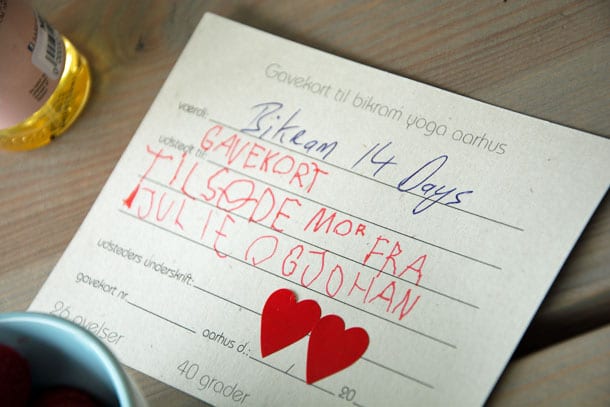 Gavekort til bikram yoga aarhus
værdi: Bikram 14 Days
udstedt til: GAVEKORT
TIL SØDE MOR FRA
JULIE OG JOHAN
udsteders underskrift:
gavekort nr.
aarhus d.: / 20
26 øvelser
40 grader